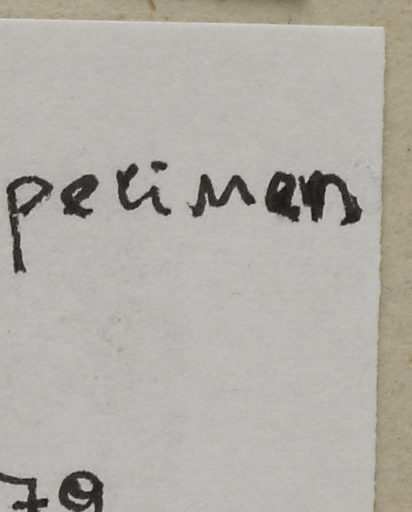 pecimen
79